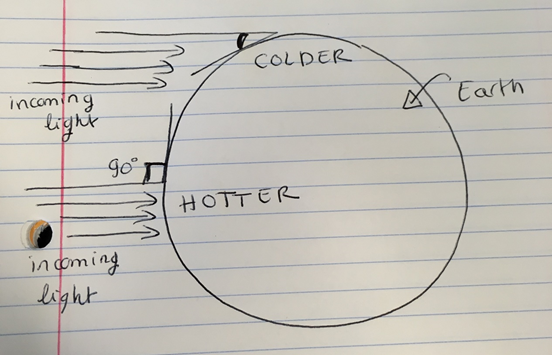 COLDER
incoming
light
Earth
90°
HOTTER
incoming
light